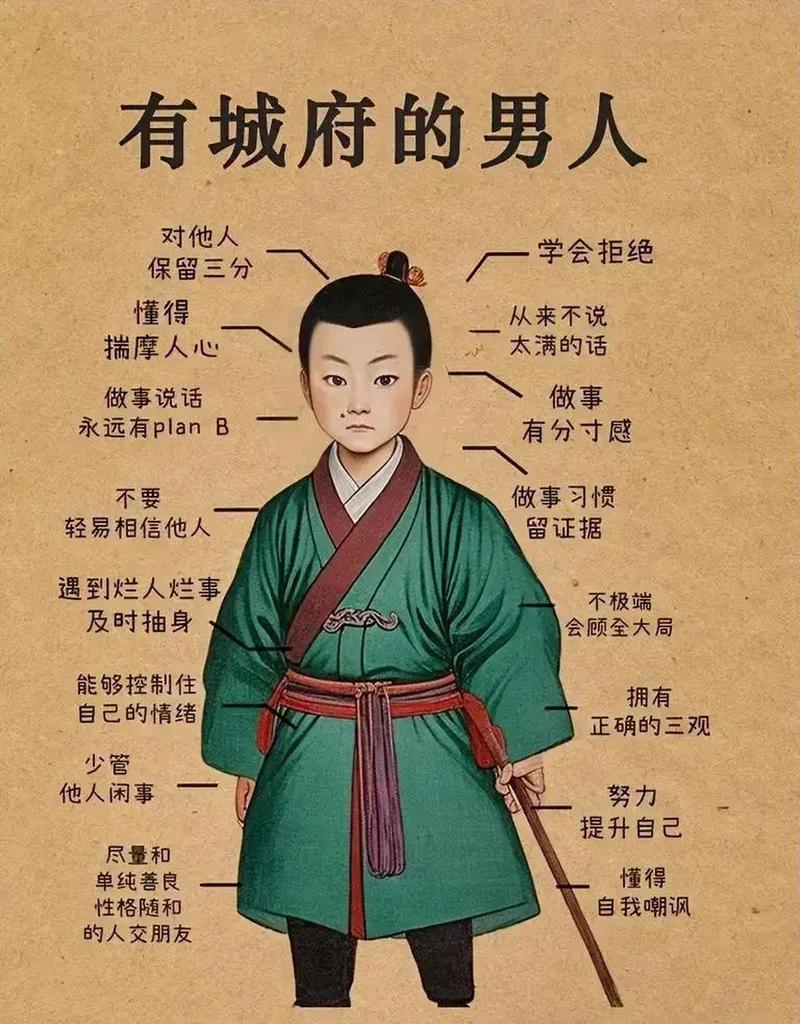 有城府的男人
对他人
保留三分
懂得
揣摩人心
做事说话
永远有plan B
不要
轻易相信他人
遇到烂人烂事
及时抽身
能够控制住
自己的情绪
少管
他人闲事
尽量和
单纯善良
性格随和
的人交朋友
学会拒绝
从来不说
太满的话
做事
有分寸感
做事习惯
留证据
不极端
会顾全大局
拥有
正确的三观
努力
提升自己
懂得
自我嘲讽